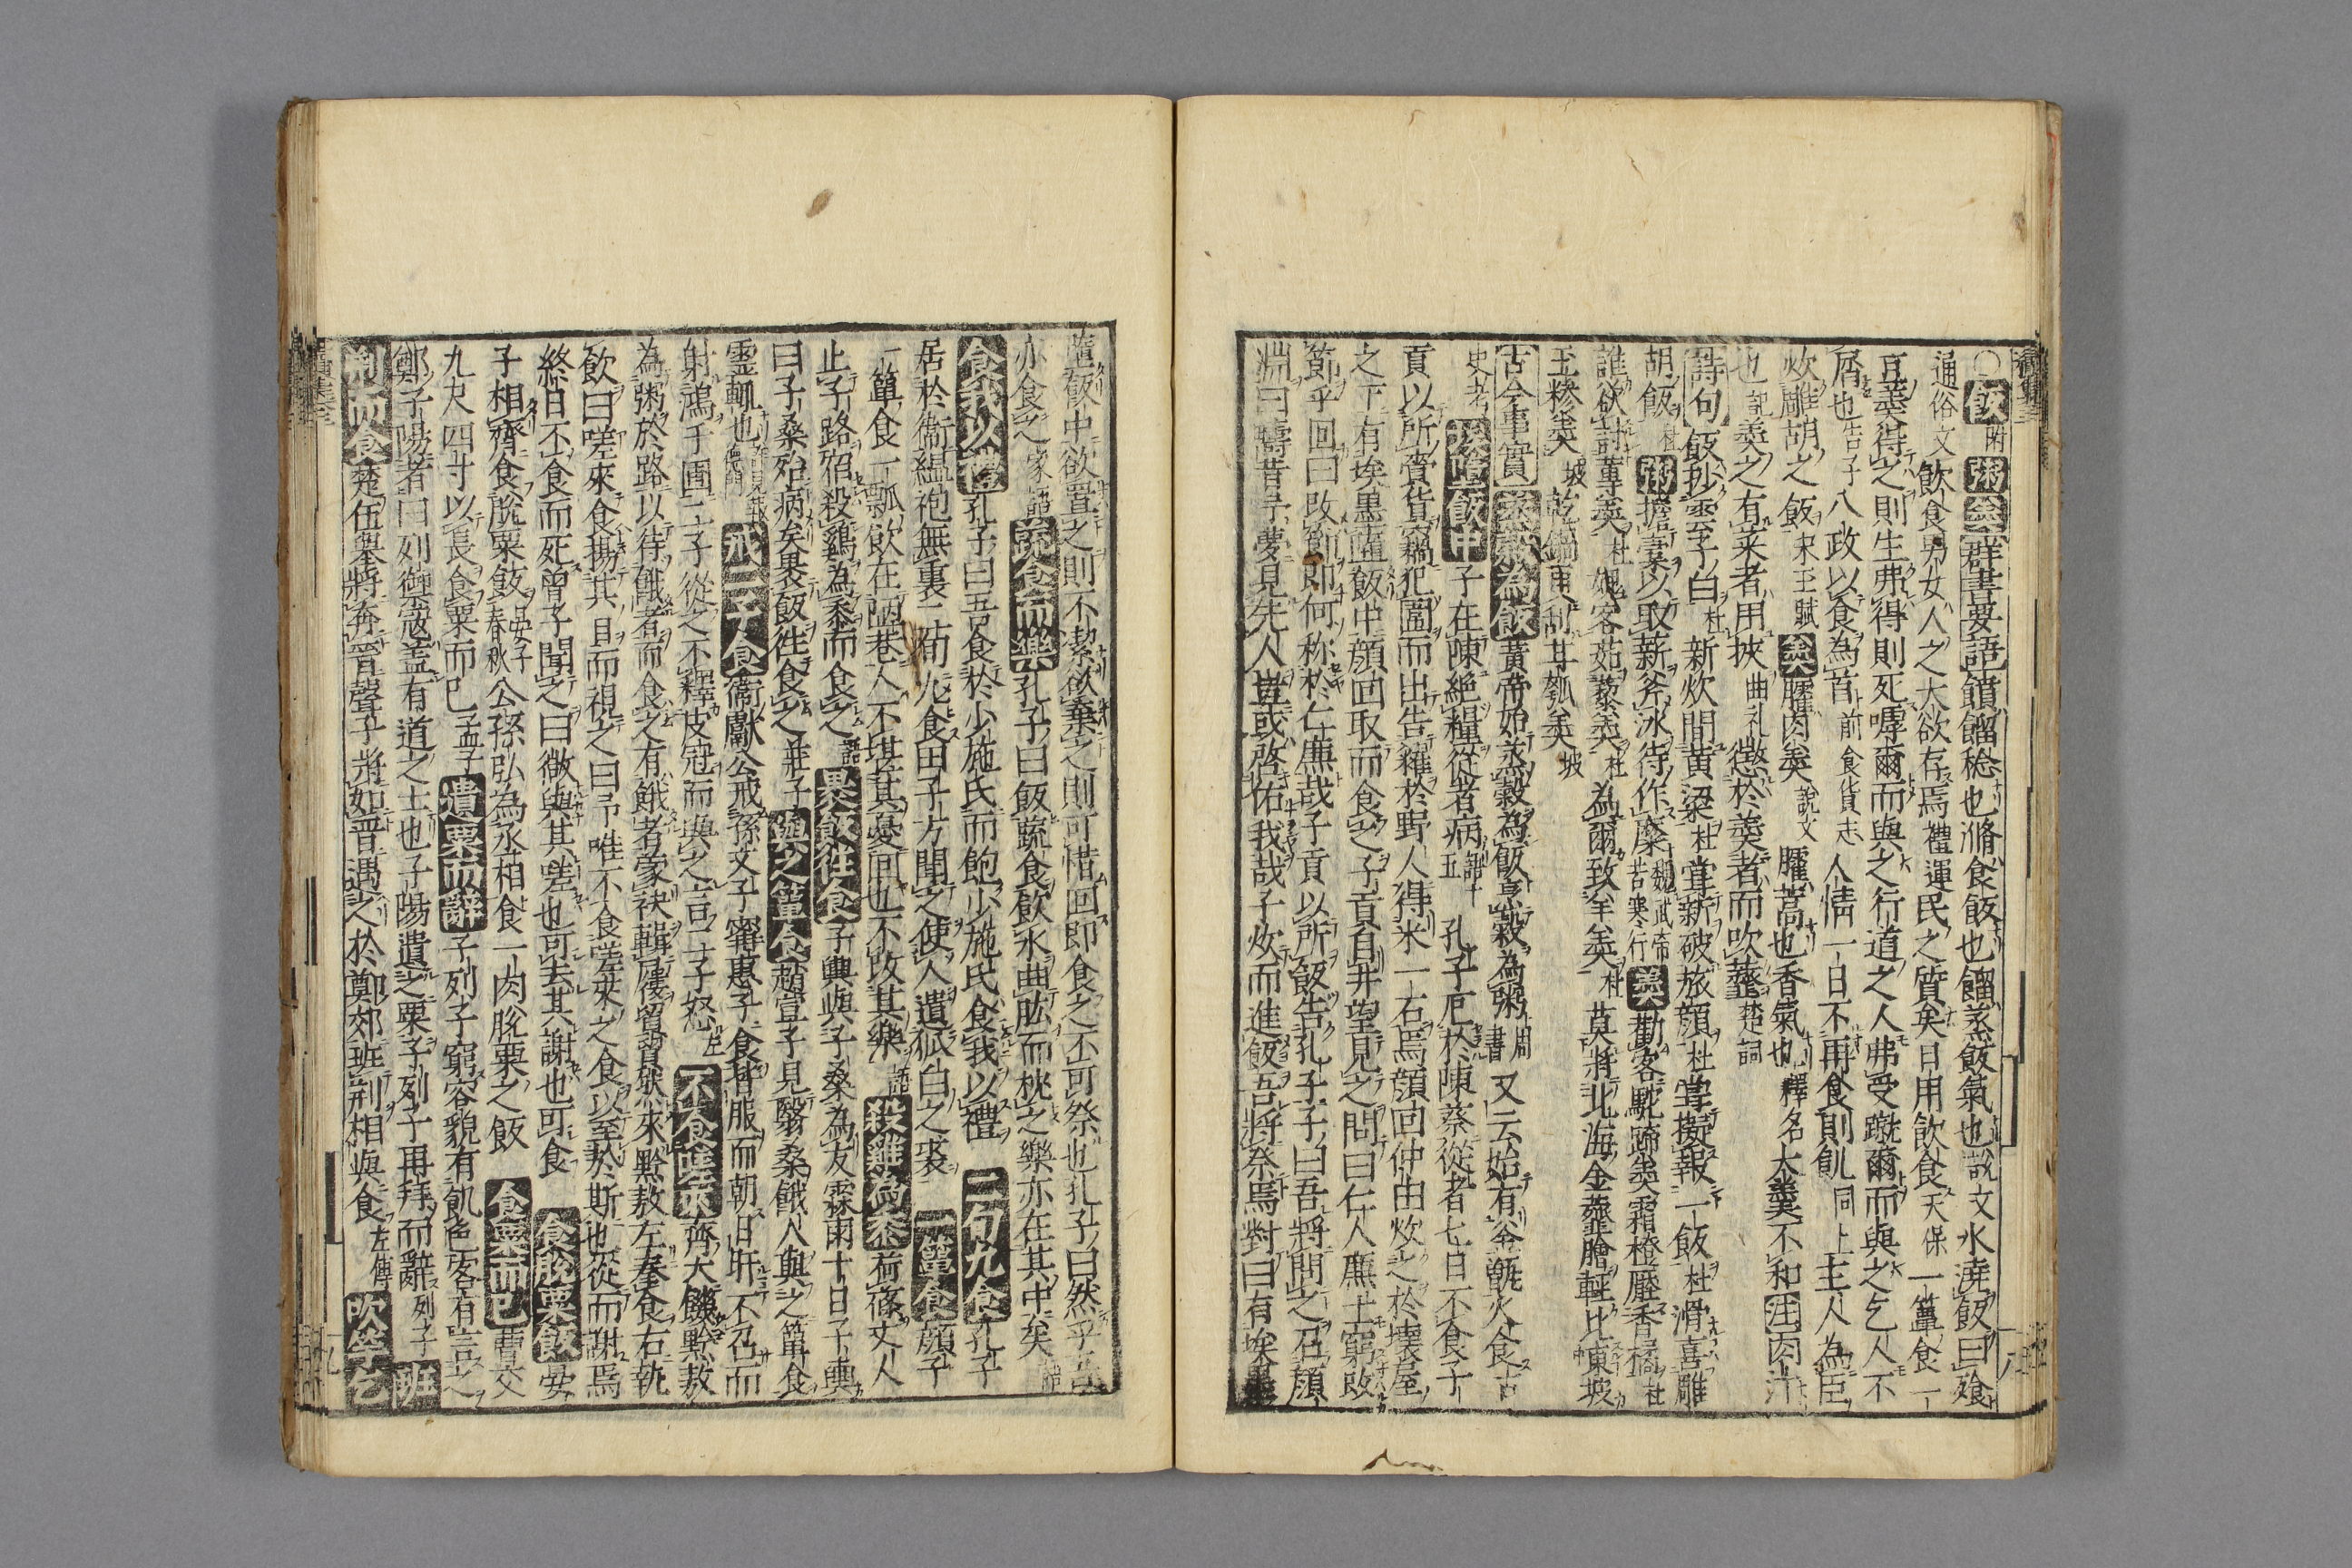 ○飯附粥羹群書要語饙餾稔也滫食飯也餾蒸飯氣也説文水澆飯曰飱
通俗文飲食男女人之大欲存焉禮運民之質矣日用飲食天保一簞食一
豆羹得之則生弗得則死嘑爾而與之行道之人弗受蹴爾而與之乞人不
屑也告子八政以食為首前食貨志人情一日不再食則飢同上主人為臣
炊雕胡之飯宋玉賦羹臛肉羹説文臛蒿也香氣也釋名大羹不和注肉汁
也記羹之有菜者用挾曲礼懲於羹者而吹虀楚詞
詩句飯抄雲子白杜新炊間黄粱杜甞新破旅顔杜嘗擬報一飯杜滑喜雕
胡飯杜粥擔囊以取薪斧冰待作糜魏武帝苦寒行羹勸客駝蹄羹霜橙壓香橘杜
誰欲討蓴羹杜媿客茹藜羹杜為爾致羊羹杜莫將北海金虀膾輕比東坡
玉糝羹坡
古今事實蒸穀為飯黄帝始蒸穀為飯烹穀為粥周書又云始有釜甑火食古
史考埃墮飯中子在陳絶糧從者病孔子厄於陳蔡從者七日不食子
貢以所賫貨竊犯圍而出告糴於野人得米一石焉顔回仲由炊之於壊屋
之下有埃黒墮飯中顔回取而食之子貢自井望見之問曰仁人廉士窮改
節乎回曰改節即何称於仁廉哉子貢以所飯告孔子子曰吾將問之召顔
淵曰疇昔予夢見先人豈或啓佑我哉子炊而進飯吾將祭焉對曰有埃墨
墮飯中欲置之則不潔欲棄之則可惜回即食之不可祭也孔子曰然乎吾
亦食之家語蔬食而樂孔子曰飯蔬食飲水曲肱而枕之樂亦在其中矣語
食我以禮孔子曰吾食於少施氏而飽少施氏食我以禮二旬九食孔子
居於衛縕袍無裏二旬九食田子方聞之使人遺狐白之裘一簞食顔子
一簞食一瓢飲在陋巷人不堪其憂回也不改其樂語殺雞為黍荷蓧丈人
止子路宿殺雞為黍而食之語裹飯往食子輿與子桑為友霖雨十日子輿
曰子桑殆病矣裹飯往食之莊子與之簞食趙宣子見翳桑餓人與之簞食
靈輒也戒二子食衛獻公戒孫文子甯惠子食皆服而朝日旰不召而
射鴻于圃二子從之不釋皮冠而與之言二子怒左不食嗟來齊大饑黔敖
為粥於路以待餓者而食之有餓者蒙袂輯屨貿貿然來黔敖左奉食右執
飲曰嗟來食揚其目而視之曰予唯不食嗟來之食以至於斯也從而謝焉
終日不食而死曾子聞之曰微與其嗟也可去其謝也可食食脱粟飯晏
子相齊食脱粟飯晏子春秋公孫弘為丞相食一肉脱粟之飯食粟而已曹交
九尺四寸以長食粟而已孟子遺粟而辭子列子窮容貌有飢色客有言之
鄭子陽者曰列禦寇盖有道之士也子陽遺之粟子列子再拜而辭列子班
荆而食楚伍舉將奔晋聲子將如晋遇之於鄭郊班荆相與食左傳吹竽乞